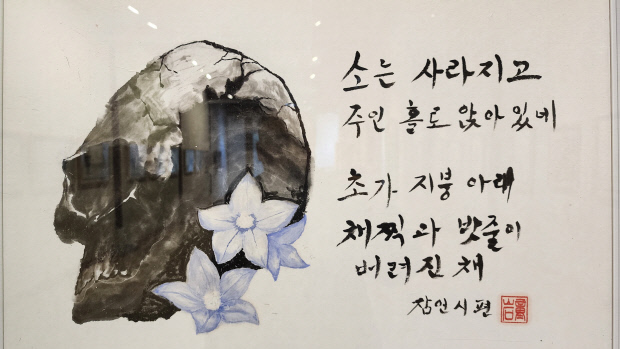 소는 사라지고
주인 홀로 앉아 있네
초가 지붕 아래
채찍과 밧줄이
버려진 채
잠언시편